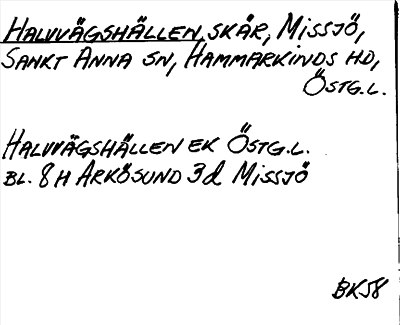 HALVVÄGSHÄLLEN, SKÄR, MISSJÖ,
SANKT ANNA SN, HAMMARKINDS HD,
ÖSTG.L.
HALVVÄGSHÄLLEN EK ÖSTG.L.
BL. 8H ARKÖSUND 3d MISSJÖ
BK58